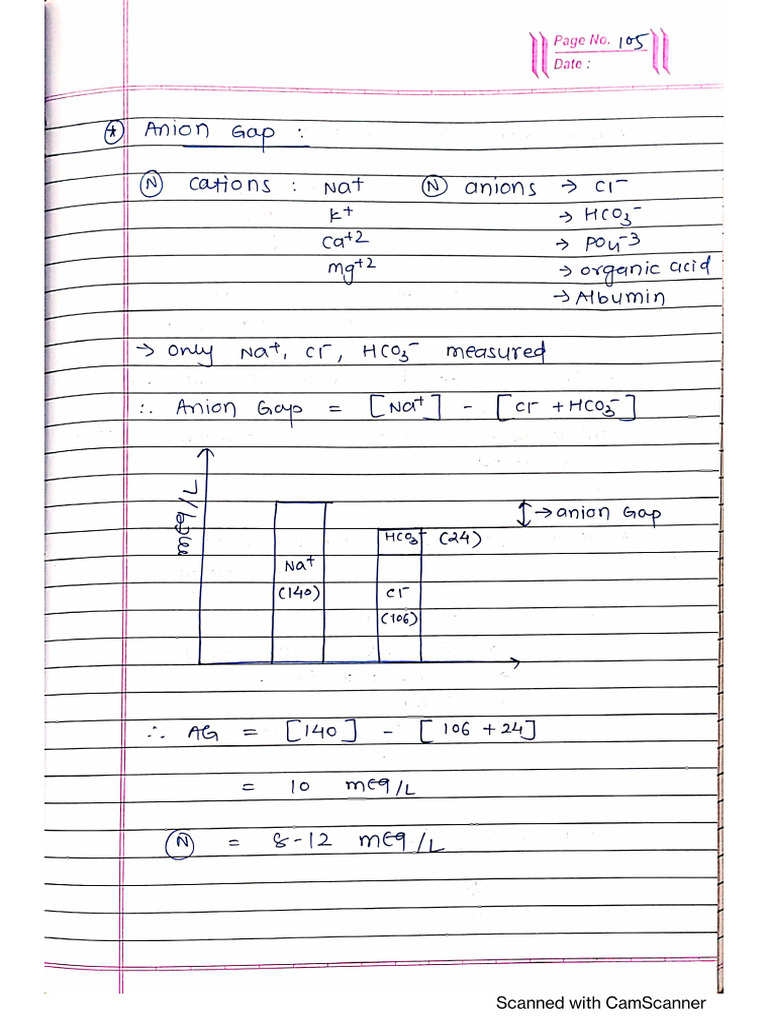 Page No. 105
Date :
* Anion Gap :
N cations : Na+ N anions → Cl-
K+ → HCO3-
Ca+2 → PO4-3
Mg+2 → organic acid
→ Albumin
→ only Na+, Cl-, HCO3- measured
∴ Anion Gap = [Na+] - [Cl- + HCO3-]
meq/L
↕ → anion Gap
HCO3- (24)
Na+
(140)
Cl-
(106)
∴ AG = [140] - [106 + 24]
= 10 mEq/L
N = 8-12 mEq/L
Scanned with CamScanner